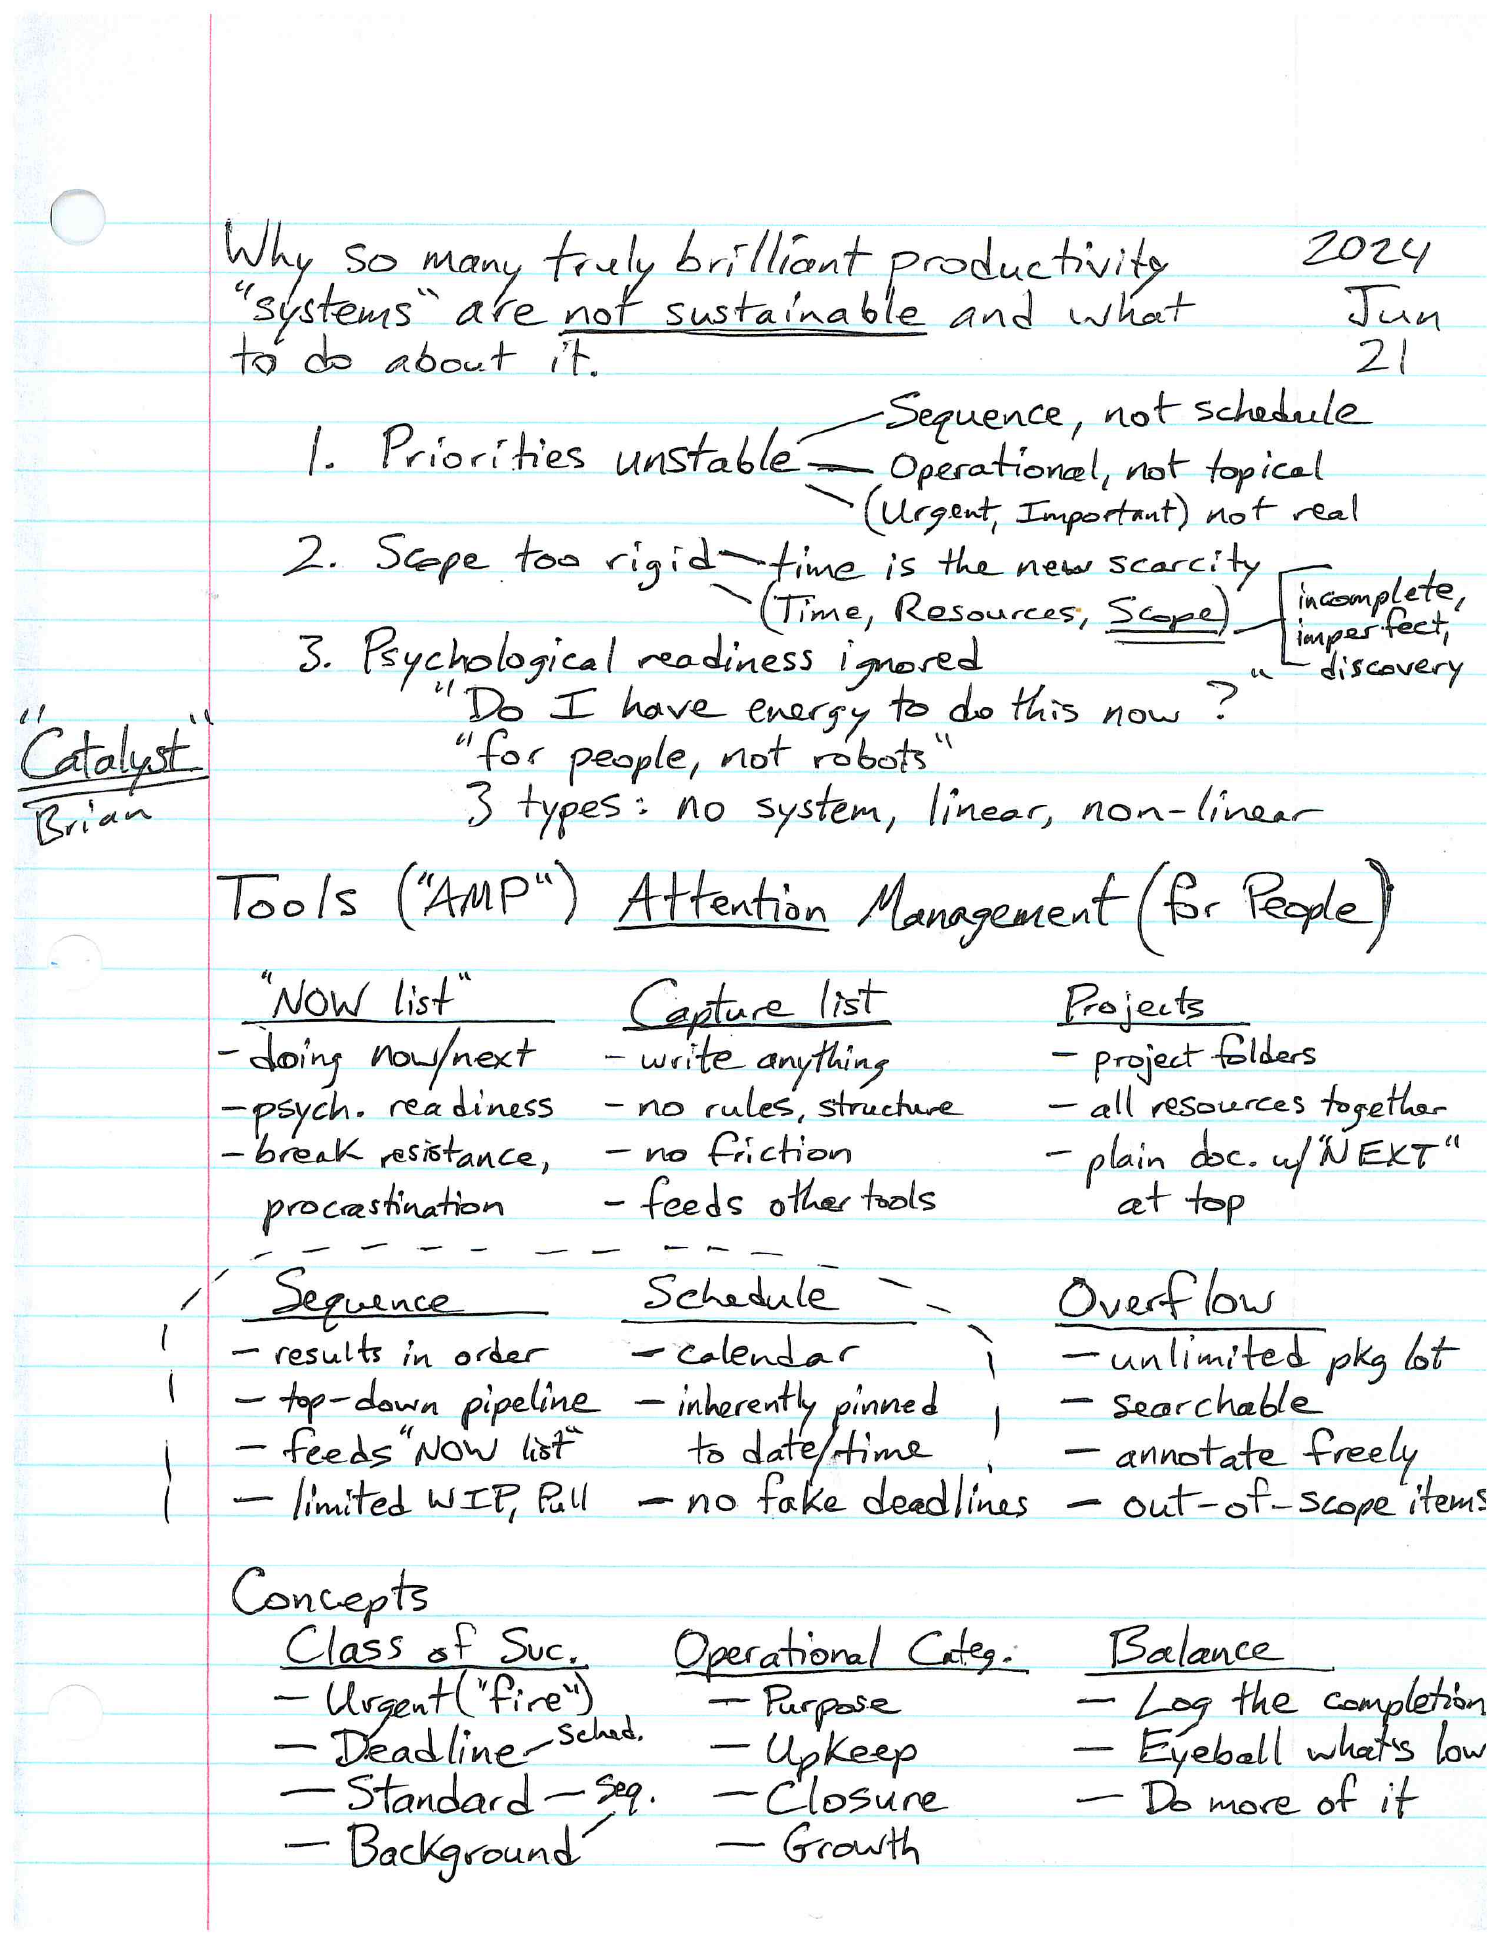 Why so many truly brilliant productivity 2024
"systems" are not sustainable and what Jun
to do about it. 21
1. Priorities unstable
Sequence, not schedule
Operational, not topical
(Urgent, Important) not real
2. Scope too rigid
time is the new scarcity
(Time, Resources, Scope)
incomplete,
imperfect,
discovery
3. Psychological readiness ignored
"Do I have energy to do this now?"
"for people, not robots"
3 types: no system, linear, non-linear
"Catalyst"
Brian
Tools ("AMP") Attention Management (for People)
"NOW list"
- doing now/next
- psych. readiness
- break resistance,
procrastination
Capture list
- write anything
- no rules, structure
- no friction
- feeds other tools
Projects
- project folders
- all resources together
- plain doc. w/"NEXT"
at top
Sequence
- results in order
- top-down pipeline
- feeds "NOW list"
- limited WIP, Pull
Schedule
- calendar
- inherently pinned
to date/time
- no fake deadlines
Overflow
- unlimited pkg lot
- searchable
- annotate freely
- out-of-scope items
Concepts
Class of Svc.
- Urgent ("fire")
- Deadline - Sched.
- Standard - Seq.
- Background
Operational Categ.
- Purpose
- Upkeep
- Closure
- Growth
Balance
- Log the completion
- Eyeball what's low
- Do more of it